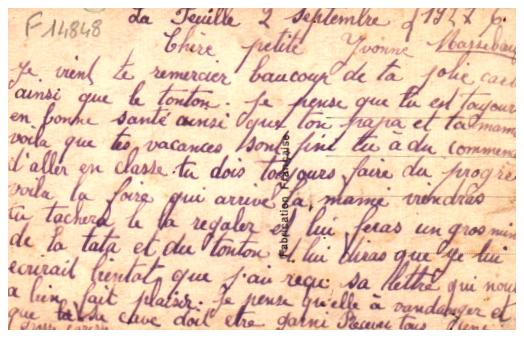 F 14848
La Feuille 2 septembre
Chère petite Yvonne
Je vient te remercier baucoup de ta jolie carte
ainsi que le tonton. Je pense que tu est toujours
en bonne santé ainsi que ton papa et ta maman
voila que tes vacances sont fini tu à du commence
d'aller en classe tu dois toujours faire du progrè
voila la foire qui arrive la mamé viendras
tu tachera le la regaler et lui feras un gros mim
de la tata et du tonton et lui diras que je lui
ecrirait bientot que j'ai reçu sa lettre qui nous
a bien fait plaisir. Je pense qu'elle à vandanger et
que sa cave doit etre garni Recevez tous
Fabrication Française